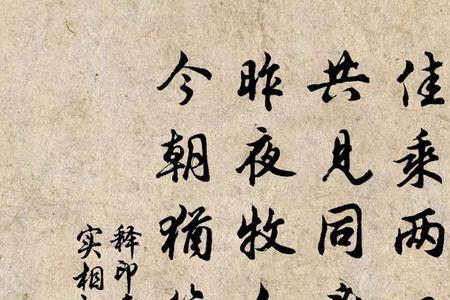 佳乘两
共见同
昨夜牧
今朝犹
释印
实相